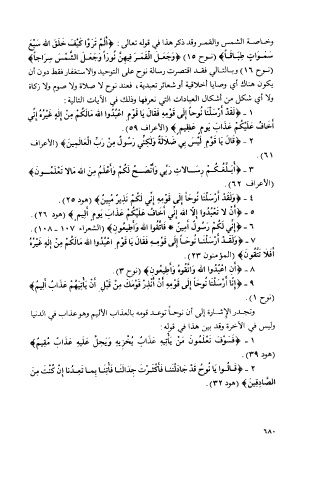 وخاصة الشمس والقمر وقد ذكر هذا في قوله تعالى : ﴿أَلَمْ تَرَوْا كَيْفَ خَلَقَ الله سَبْعَ
سَمَوَاتٍ طِبَاقاً﴾ (نوح ١٥) ﴿وَجَعَلَ الْقَمَرَ فِيهِنَّ نُوراً وَجَعَلَ الشَّمْسَ سِرَاجاً﴾
(نوح ١٦) وبالتالي فقد اقتصرت رسالة نوح على التوحيد والاستغفار فقط دون أن
يكون هناك أي وصايا أخلاقية أو شعائر تعبدية، فعند نوح لا صلاة ولا صوم ولا زكاة
ولا أي شكل من أشكال العبادات التي نعرفها وذلك في الآيات التالية :
١ - ﴿لَقَدْ أَرْسَلْنَا نُوحاً إِلَى قَوْمِهِ فَقَالَ يَا قَوْمِ اعْبُدُوا الله مَالَكُمْ مِنْ إِلَهٍ غَيْرُهُ إِنِّي
أَخَافُ عَلَيْكُمْ عَذَابَ يَوْمٍ عَظِيمٍ﴾ (الأعراف ٥٩).
٢ - ﴿قَالَ يَا قَوْمِ لَيْسَ بِي ضَلَالَةٌ وَلَكِنِّي رَسُولٌ مِنْ رَبِّ الْعَالَمِينَ﴾ (الأعراف
٦١).
٣ - ﴿أُبَلِّغُكُمْ رِسَالَاتِ رَبِّي وَأَنْصَحُ لَكُمْ وَأَعْلَمُ مِنَ الله مَالَا تَعْلَمُونَ﴾
(الأعراف ٦٢).
٤ - ﴿وَلَقَدْ أَرْسَلْنَا نُوحاً إِلَى قَوْمِهِ إِنِّي لَكُمْ نَذِيرٌ مُبِينٌ﴾ (هود ٢٥).
٥ - ﴿أَنْ لَا تَعْبُدُوا إِلَّا الله إِنِّي أَخَافُ عَلَيْكُمْ عَذَابَ يَوْمٍ أَلِيمٍ﴾ (هود ٢٦).
٦ - ﴿إِنِّي لَكُمْ رَسُولٌ أَمِينٌ * فَاتَّقُوا الله وَأَطِيعُونِ﴾ (الشعراء ١٠٧ - ١٠٨).
٧ - ﴿وَلَقَدْ أَرْسَلْنَا نُوحاً إِلَى قَوْمِهِ فَقَالَ يَا قَوْمِ اعْبُدُوا الله مَالَكُمْ مِنْ إِلَهٍ غَيْرُهُ
أَفَلَا تَتَّقُونَ﴾ (المؤمنون ٢٣).
٨ - ﴿أَنِ اعْبُدُوا الله وَاتَّقُوهُ وَأَطِيعُونِ﴾ (نوح ٣).
٩ - ﴿إِنَّا أَرْسَلْنَا نُوحاً إِلَى قَوْمِهِ أَنْ أَنْذِرْ قَوْمَكَ مِنْ قَبْلِ أَنْ يَأْتِيَهُمْ عَذَابٌ أَلِيمٌ﴾
(نوح ١).
وتجدر الإشارة إلى أن نوحاً توعد قومه بالعذاب الأليم وهو عذاب في الدنيا
وليس في الآخرة وقد بين هذا في قوله:
١ - ﴿فَسَوْفَ تَعْلَمُونَ مَنْ يَأْتِيهِ عَذَابٌ يُخْزِيهِ وَيَحِلُّ عَلَيْهِ عَذَابٌ مُقِيمٌ﴾
(هود ٣٩).
٢ - ﴿قَالُوا يَا نُوحُ قَدْ جَادَلْتَنَا فَأَكْثَرْتَ جِدَالَنَا فَأْتِنَا بِمَا تَعِدُنَا إِنْ كُنْتَ مِنَ
الصَّادِقِينَ﴾ (هود ٣٢).
٦٨٠